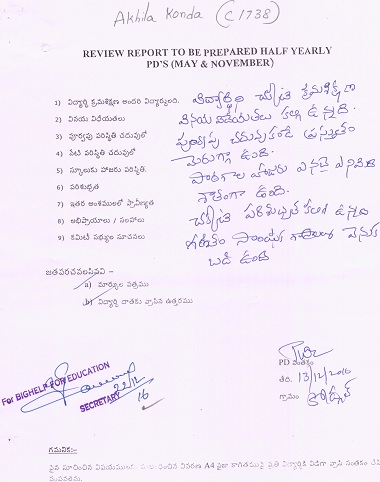 Akhila Konda (C1738)
REVIEW REPORT TO BE PREPARED HALF YEARLY
PD'S (MAY & NOVEMBER)
1) విద్యార్థి క్రమశిక్షణ అందరి విద్యార్థులది.
2) వినయ విధేయతలు
3) పూర్వపు పరిస్థితి చదువులో
4) నేటి పరిస్థితి చదువులో
5) స్కూలుకు హాజరు పరిస్థితి.
6) పరిశుభ్రత
7) ఇతర అంశములలో ప్రావీణ్యత
8) అభిప్రాయాలు / సలహాలు
9) కమిటీ సభ్యుల సూచనలు
విద్యార్థిని చక్కటి క్రమశిక్షణ
వినయ విధేయతలు కలిగి ఉన్నది.
పూర్వపు చదువుకంటే ప్రస్తుతం
మెరుగ్గా ఉంది.
హాజరు ఎనభై ఎనిమిది
శాతంగా ఉంది.
చక్కటి పరిశుభ్రత కలిగి ఉన్నది
వెనుక
బడి ఉంది
జతపరచవలసినవి :-
a) మార్కుల పత్రము
b) విద్యార్థి దాతకు వ్రాసిన ఉత్తరము
For BIGHELP FOR EDUCATION
22/12
16
SECRETARY
PD సంతకం
తేది. 13/12/2016
గ్రామం
గమనిక:-
పైన సూచించిన విషయములకు సంబంధించిన వివరణ A4 సైజు కాగితముపై ప్రతి విద్యార్థికి విడిగా వ్రాసి సంతకం